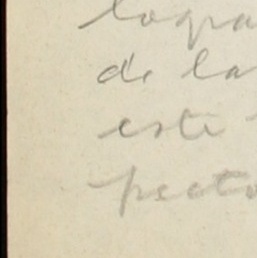 logra
de la
este
pecto